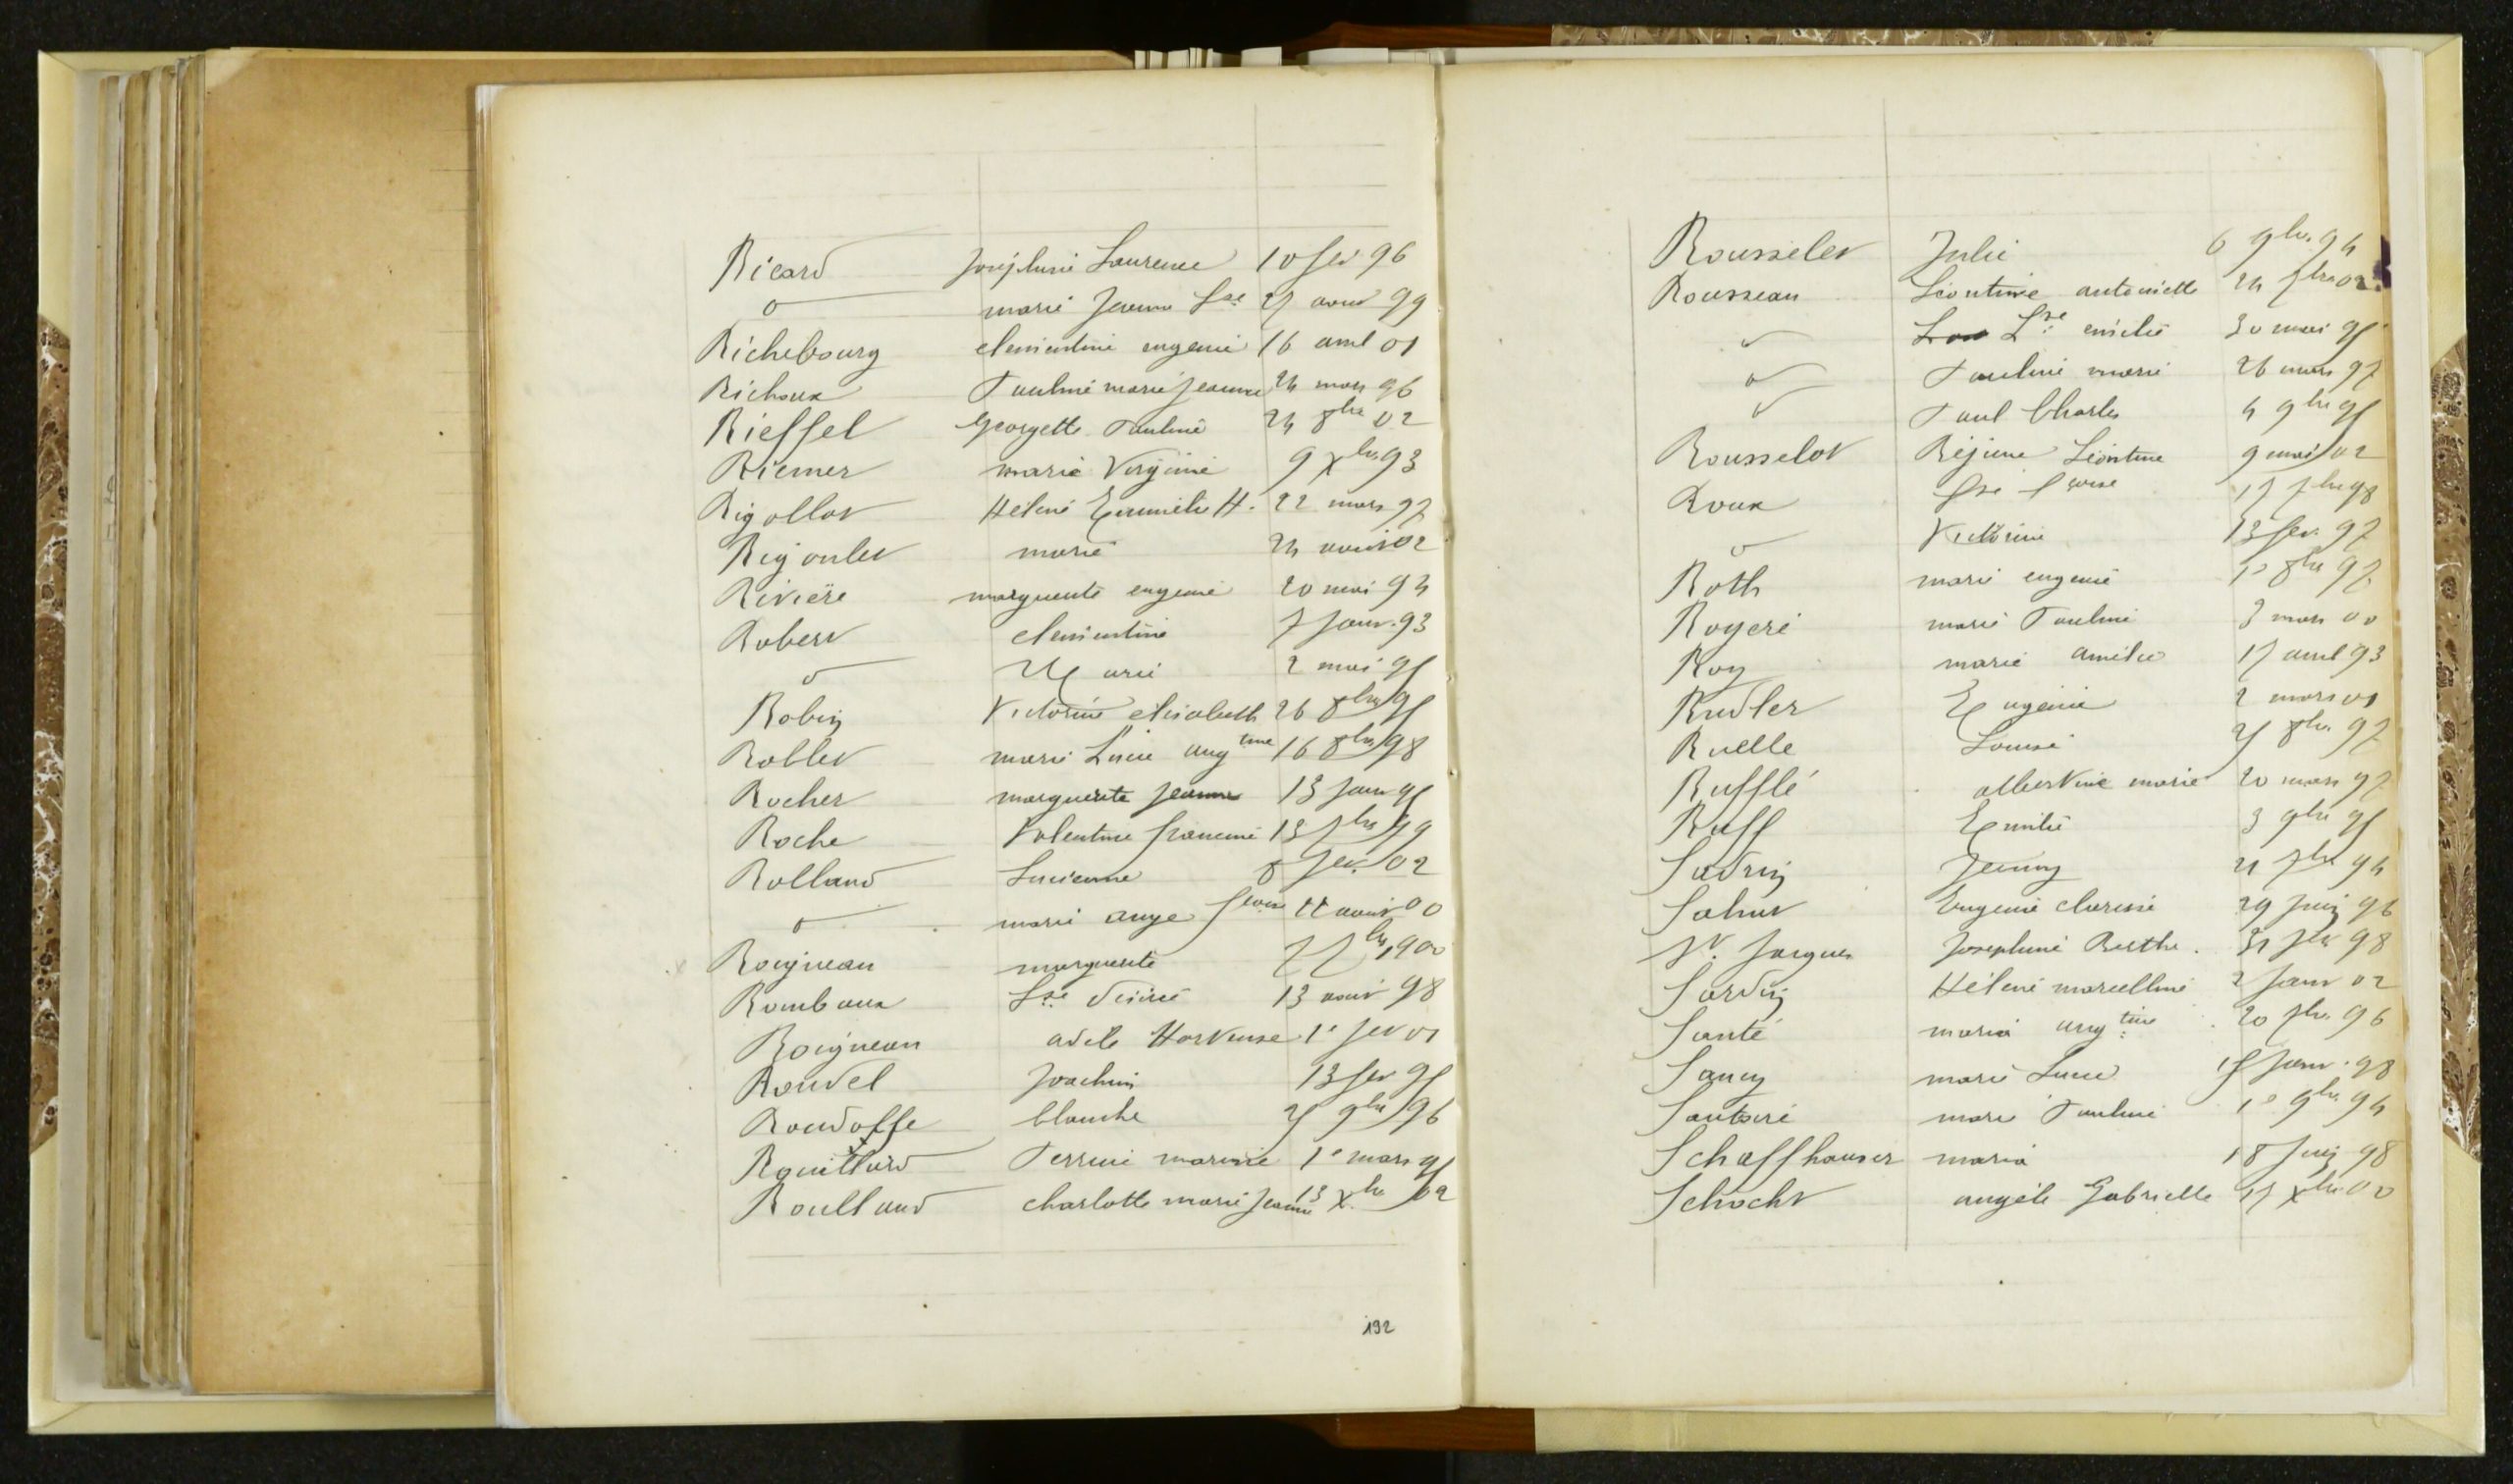 Ricard Joséphine Laurence 10 fev 96
d° marie Jeanne Lse 27 aout 99
Richebourg clementine eugenie 16 avril 01
Richoux Pauline marie Jeanne 24 mars 96
Rieffel Georgette Pauline 24 8bre 02
Riemer marie Virginie 9 Xbre 93
Rigollot Hélène Emmelie H. 22 mars 97
Rigoulet marie 24 aout 02
Rivière marguerite eugenie 20 mai 94
Robert clementine 7 Janv. 93
d° Marie 2 mai 95
Robin Victorine elisabeth 26 8bre 95
Roblet marie Lucie augtine 16 8bre 98
Rocher marguerite Jeanne 13 Janv 95
Roche Valentine francine 13 7bre 99
Rolland Lucienne 8 fev. 02
d° marie ange fcoise 22 aout 00
Roigneau marguerite 7 7bre 1900
Rombaux Lse désirée 13 aout 98
Roigneau adèle Hortense 1er fev 01
Rondel Joachim 13 fev 95
Rondoffe blanche 25 9bre 96
Rouillard Perrine marie 1er mars 95
Roulland charlotte marie Jeanne 13 Xbre 02
192
Rousselet Julie 6 9bre 94
Rousseau Léontine antoinette 24 7bre 02
d° Lse emilie 30 mai 95
d° Pauline marie 26 mars 97
d° Paul Charles 4 9bre 95
Rousselot Régine Léontine 9 mai 02
Roux 17 7bre 98
d° Victorine 13 fev. 97
Roth marie eugenie 1er 8bre 97
Rogeré marie Pauline 3 mars 00
Roy marie amélie 17 avril 93
Rudler Eugénie 2 mars 01
Ruelle Louise 25 8bre 97
Rufflé albertine marie 20 mars 97
Ruff Emilie 3 9bre 95
Sadrin Jenny 21 7bre 94
Sahut Eugenie clarisse 29 Juin 96
St. Jacques Josephine Berthe. 98
Sardin Hélène marcelline 2 Janv 02
Santé maria augtine 20 7bre 96
Saucy marie Lucie 15 Janv. 98
Sautaré marie Pauline 1er 9bre 94
Schaffhauser maria 18 Juin 98
Schacht angèle Gabrielle 17 Xbre 00